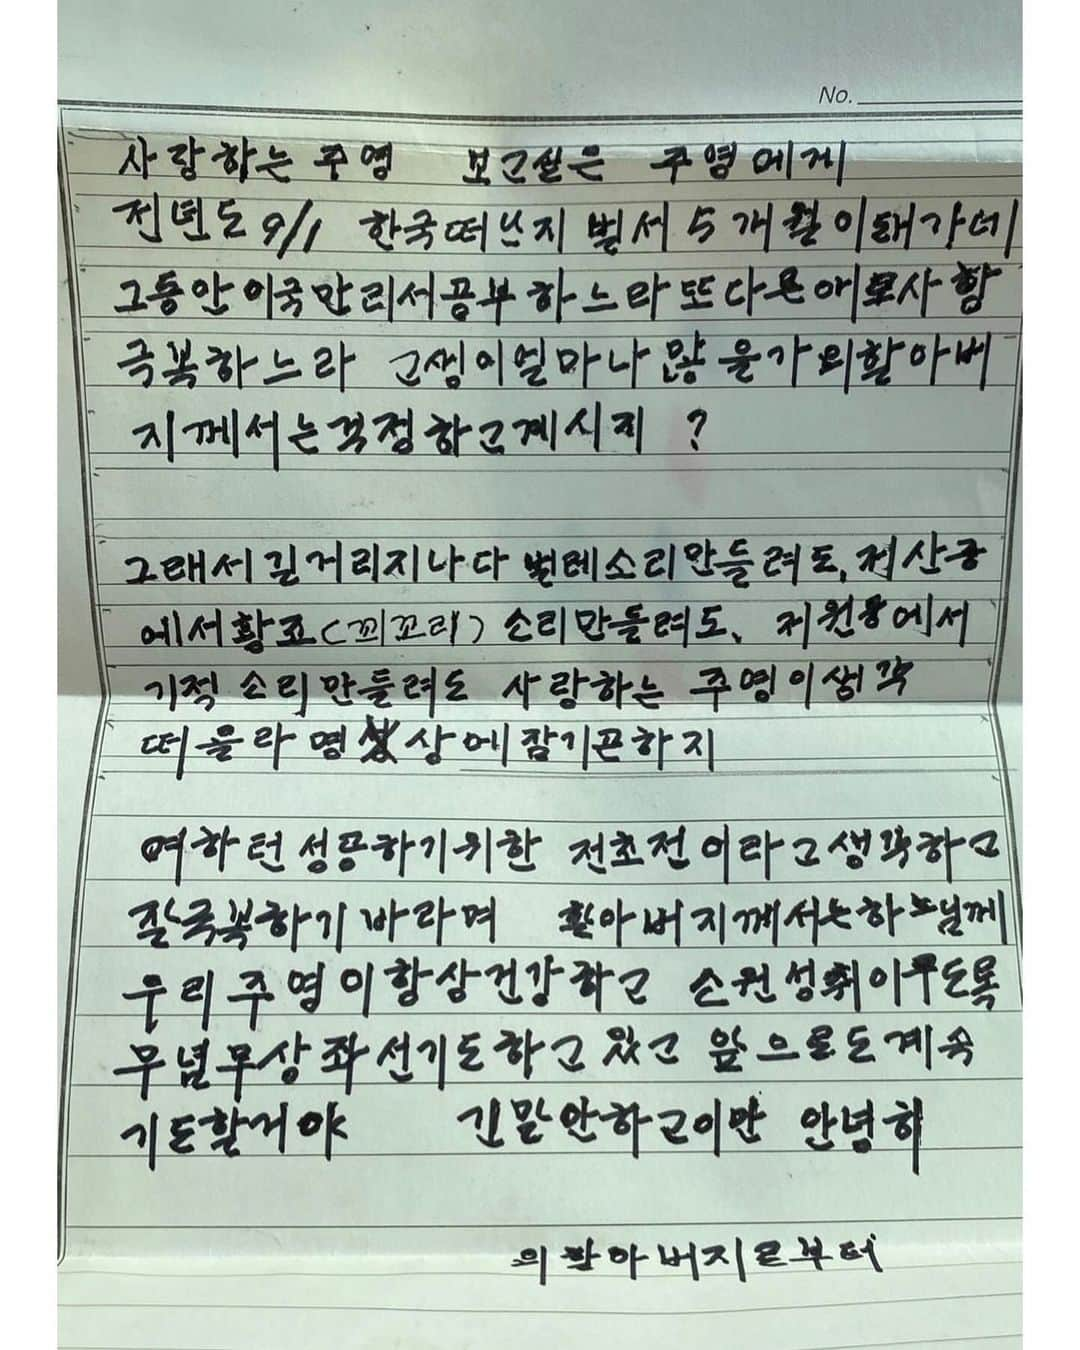 No.
사랑하는 주영 보고싶은 주영에게
전년도 9/1 한국떠난지 벌서 5개월이돼가네
그동안이국만리서공부하느라또다른애로사항
극복하느라 고생이얼마나 많을가외할아버
지께서는걱정하고계시지 ?
그래서길거리지나다 벌레소리만들려도, 저산중
에서황조(꾀꼬리) 소리만들려도、 저원중에서
기적 소리만들려도 사랑하는 주영이생각
떠올라 명상에잠기곤하지
여하턴성공하기위한 전초전이라고생각하고
잘극복하기바라며 할아버지께서는하느님께
우리주영이항상건강하고 소원성취이루도록
무념무상좌선기도하고있고 앞으로도계속
기도할거야 긴말안하고이만 안녕히
외할아버지로부터